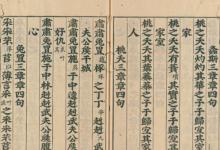 螽斯三章章四句
桃之夭夭灼灼其華之子于歸宜其
室家
桃之夭夭有蕡其實之子于歸宜其
家室
桃之夭夭其葉蓁蓁之子于歸宜其家
人
桃夭三章章四句
肅肅兔罝椓之丁丁赳赳武
夫公侯干城
肅肅兔罝施于中逵赳赳武夫公侯
好仇
肅肅兔罝施于中林赳赳武夫公侯腹
心
兔罝三章章四句
采采芣苢薄言采之采采